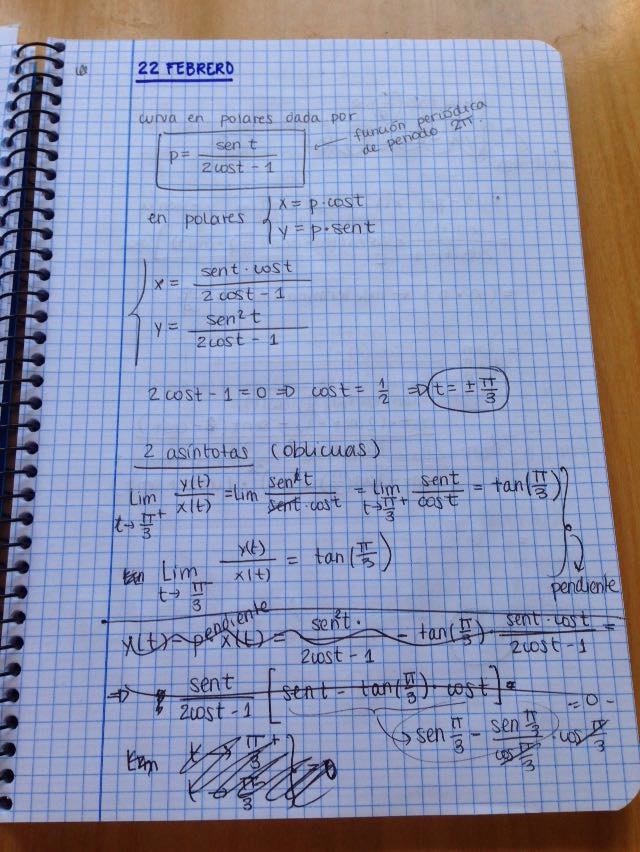 22 FEBRERO
curva en polares dada por
p = sen t / 2cost - 1
función periódica
de periodo 2π.
en polares { x = p·cost
y = p·sent
x = sent·cost / 2cost - 1
y = sen²t / 2cost - 1
2cost - 1 = 0 ⇒ cost = 1/2 ⇒ t = ± π/3
2 asíntotas (oblicuas)
Lim t→π/3⁺ y(t)/x(t) = Lim sen²t / sent·cost = Lim t→π/3⁺ sent/cost = tan(π/3)
Lim t→π/3⁻ y(t)/x(t) = tan(π/3)
pendiente
y(t) - pendiente · x(t) = sen²t / 2cost - 1 - tan(π/3) · sent·cost / 2cost - 1 =
⇒ sent / 2cost - 1 [sent - tan(π/3)·cost] =
= 0 -
→ sen π/3 - sen π/3 / cos π/3 · cos π/3
t → π/3⁺
t → π/3⁻ } = 0